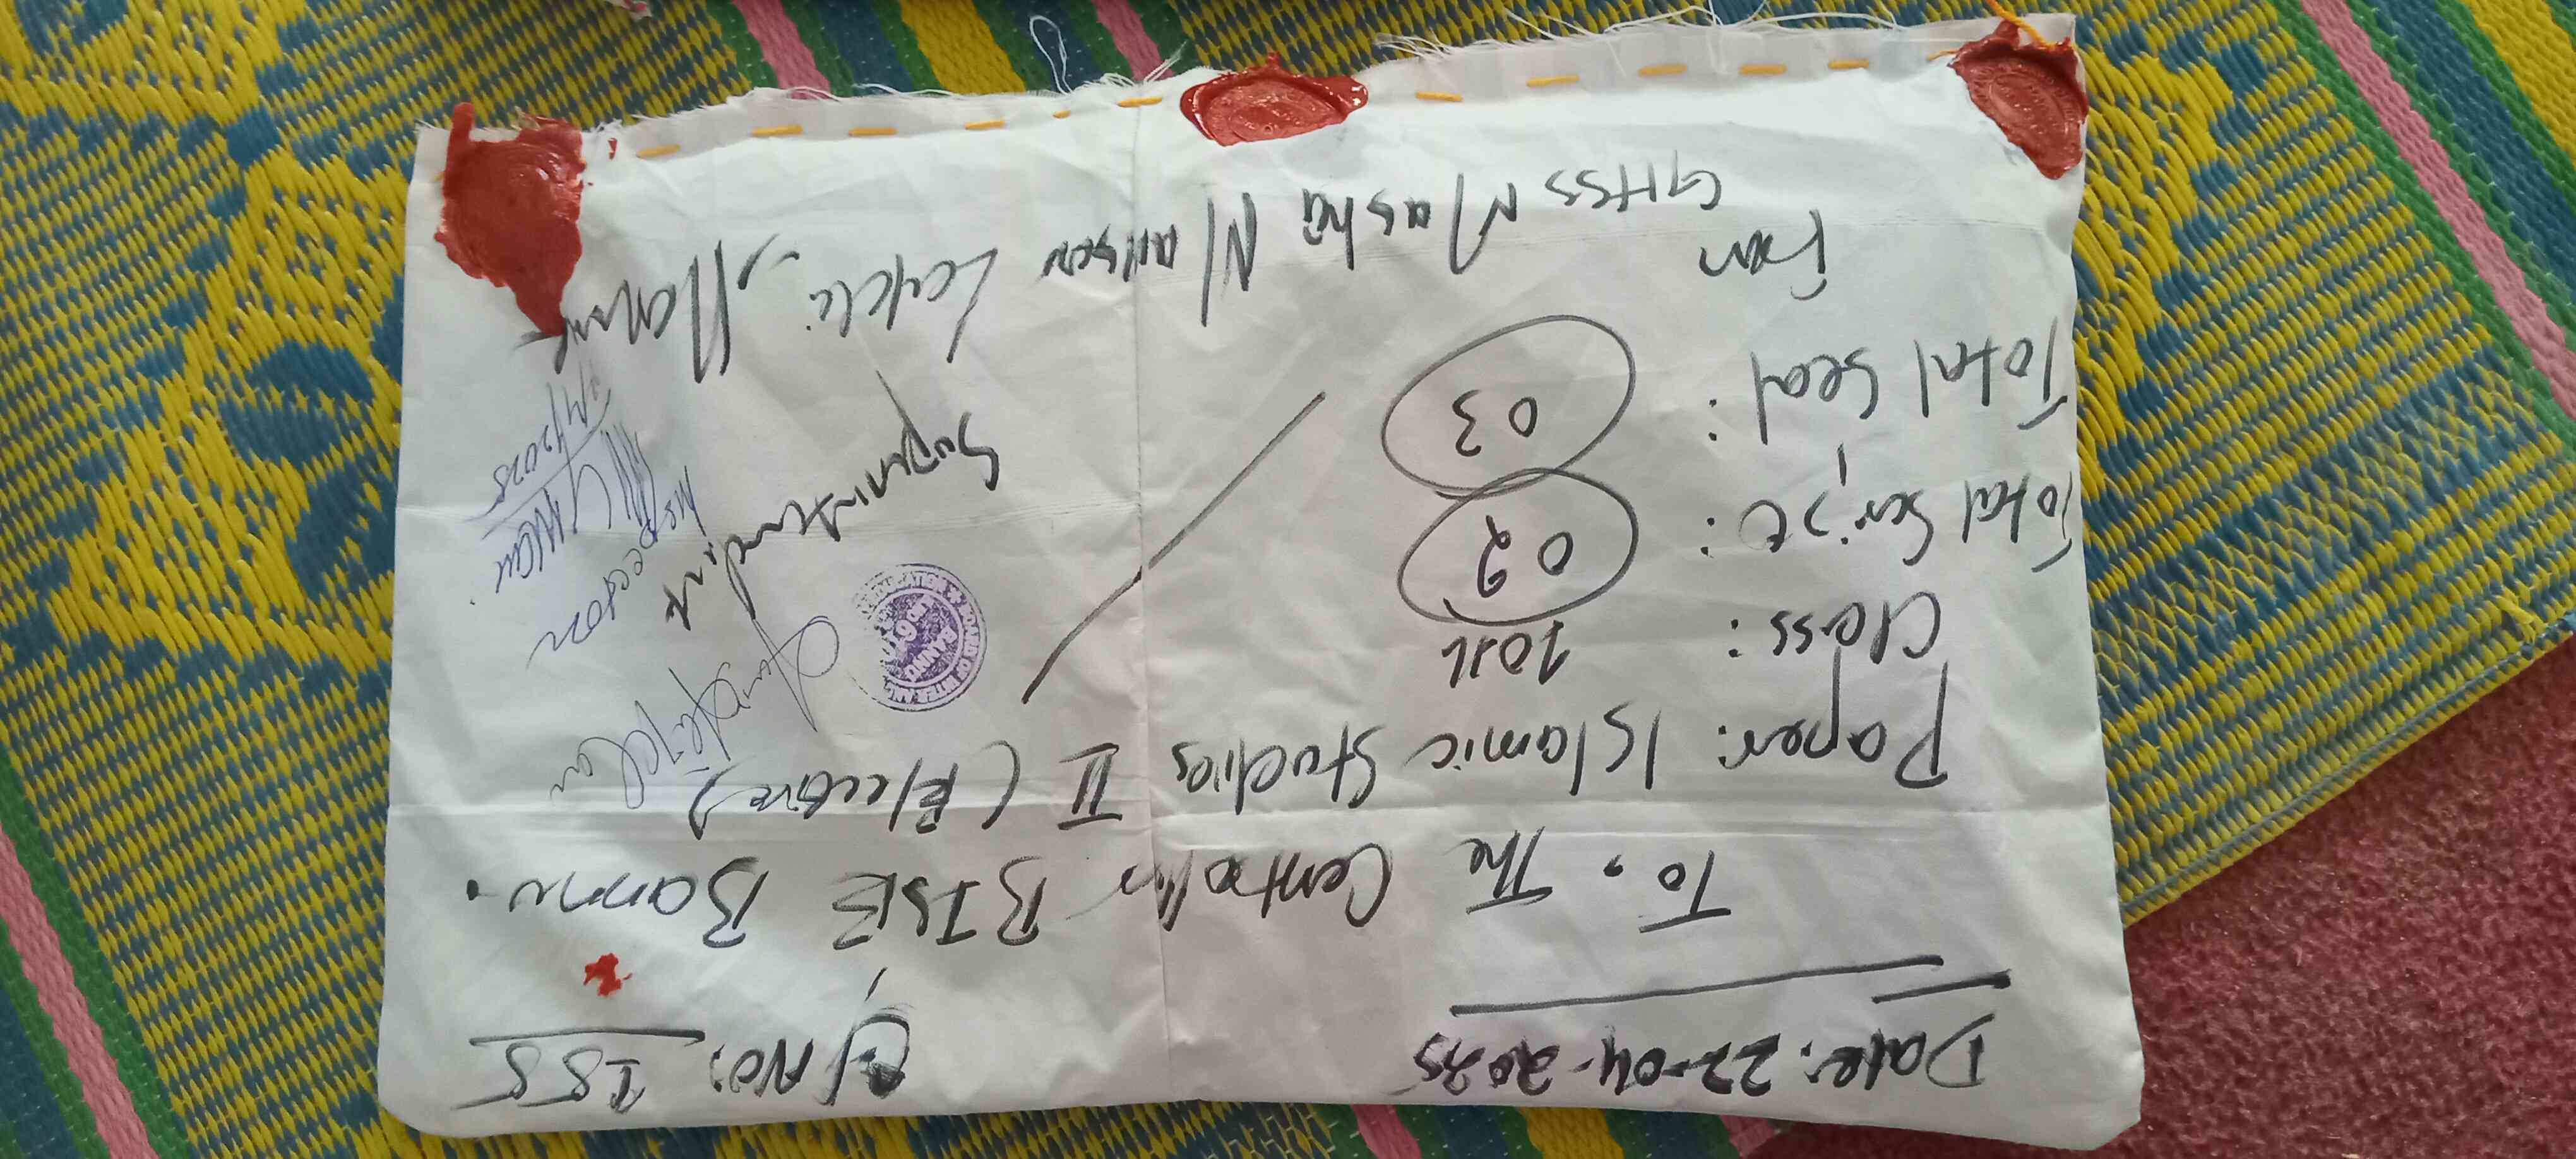 Date: 22-04-2025
C/No: 155
To, The Controller BISE Bannu.
Paper: Islamic Studies II (Elective)
Class: 10th
Total Script: 02
Total Seal: 03
From
GHSS Masha Mansoor Lakki Marwat
Superintendent
Inspector
BOARD OF INTER AN
EDUCATION
BANNU